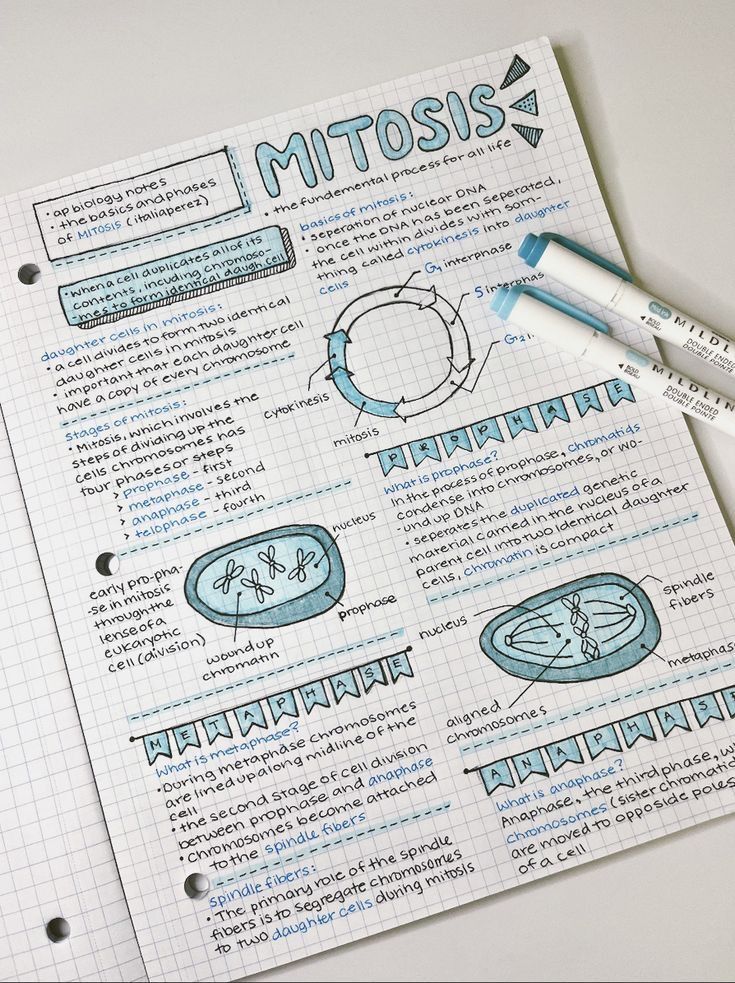 MITOSIS
• the fundemental process for all life
• ap biology notes
• the basics and phases
of MITOSIS (italiaperez)
• When a cell duplicates all of its
contents, including chromoso-
mes to form identical daugh. cell
daughter cells in mitosis:
• a cell divides to form two identical
daughter cells in mitosis
• important that each daughter cell
have a copy of every chromosome
basics of mitosis:
• seperation of nuclear DNA
• once the DNA has been seperated,
the cell within divides with som-
thing called cytokinesis into daughter
cells
G₁ interphase
S interphas
G₂ i
cytokinesis
mitosis
Stages of mitosis:
• Mitosis, which involves the
steps of dividing up the
cells chromosomes has
four phases or steps
> prophase - first
> metaphase - second
> anaphase - third
> telophase - fourth
early pro-pha-
-se in mitosis
through the
lense of a
eukaryotic
cell (division)
nucleus
prophase
wound up
chromatin
PROPHASE
What is prophase?
• In the process of prophase, chromatids
condense into chromosomes, or wo-
-und up DNA
• seperates the duplicated genetic
material carried in the nucleus of a
parent cell into two identical daughter
cells, chromatin is compact
nucleus
spindle
fibers
metaphase
aligned
chromosomes
METAPHASE
What is metaphase?
• During metaphase chromosomes
are lined up along midline of the
cell
• the second stage of cell division
between prophase and anaphase
• Chromosomes become attached
to the spindle fibers
spindle fibers:
• The primary role of the spindle
fibers is to segregate chromosomes
to two daughter cells during mitosis
ANAPHAS
What is anaphase?
Anaphase, the third phase, w
chromosomes (sister chromatid
are moved to opposide poles
of a cell
BOLD
MILDLIN
DOUBLE ENDED
DOUBLE POINTE
BOLD
MILDLIN
DOUBLE ENDED
DOUBLE POINTE